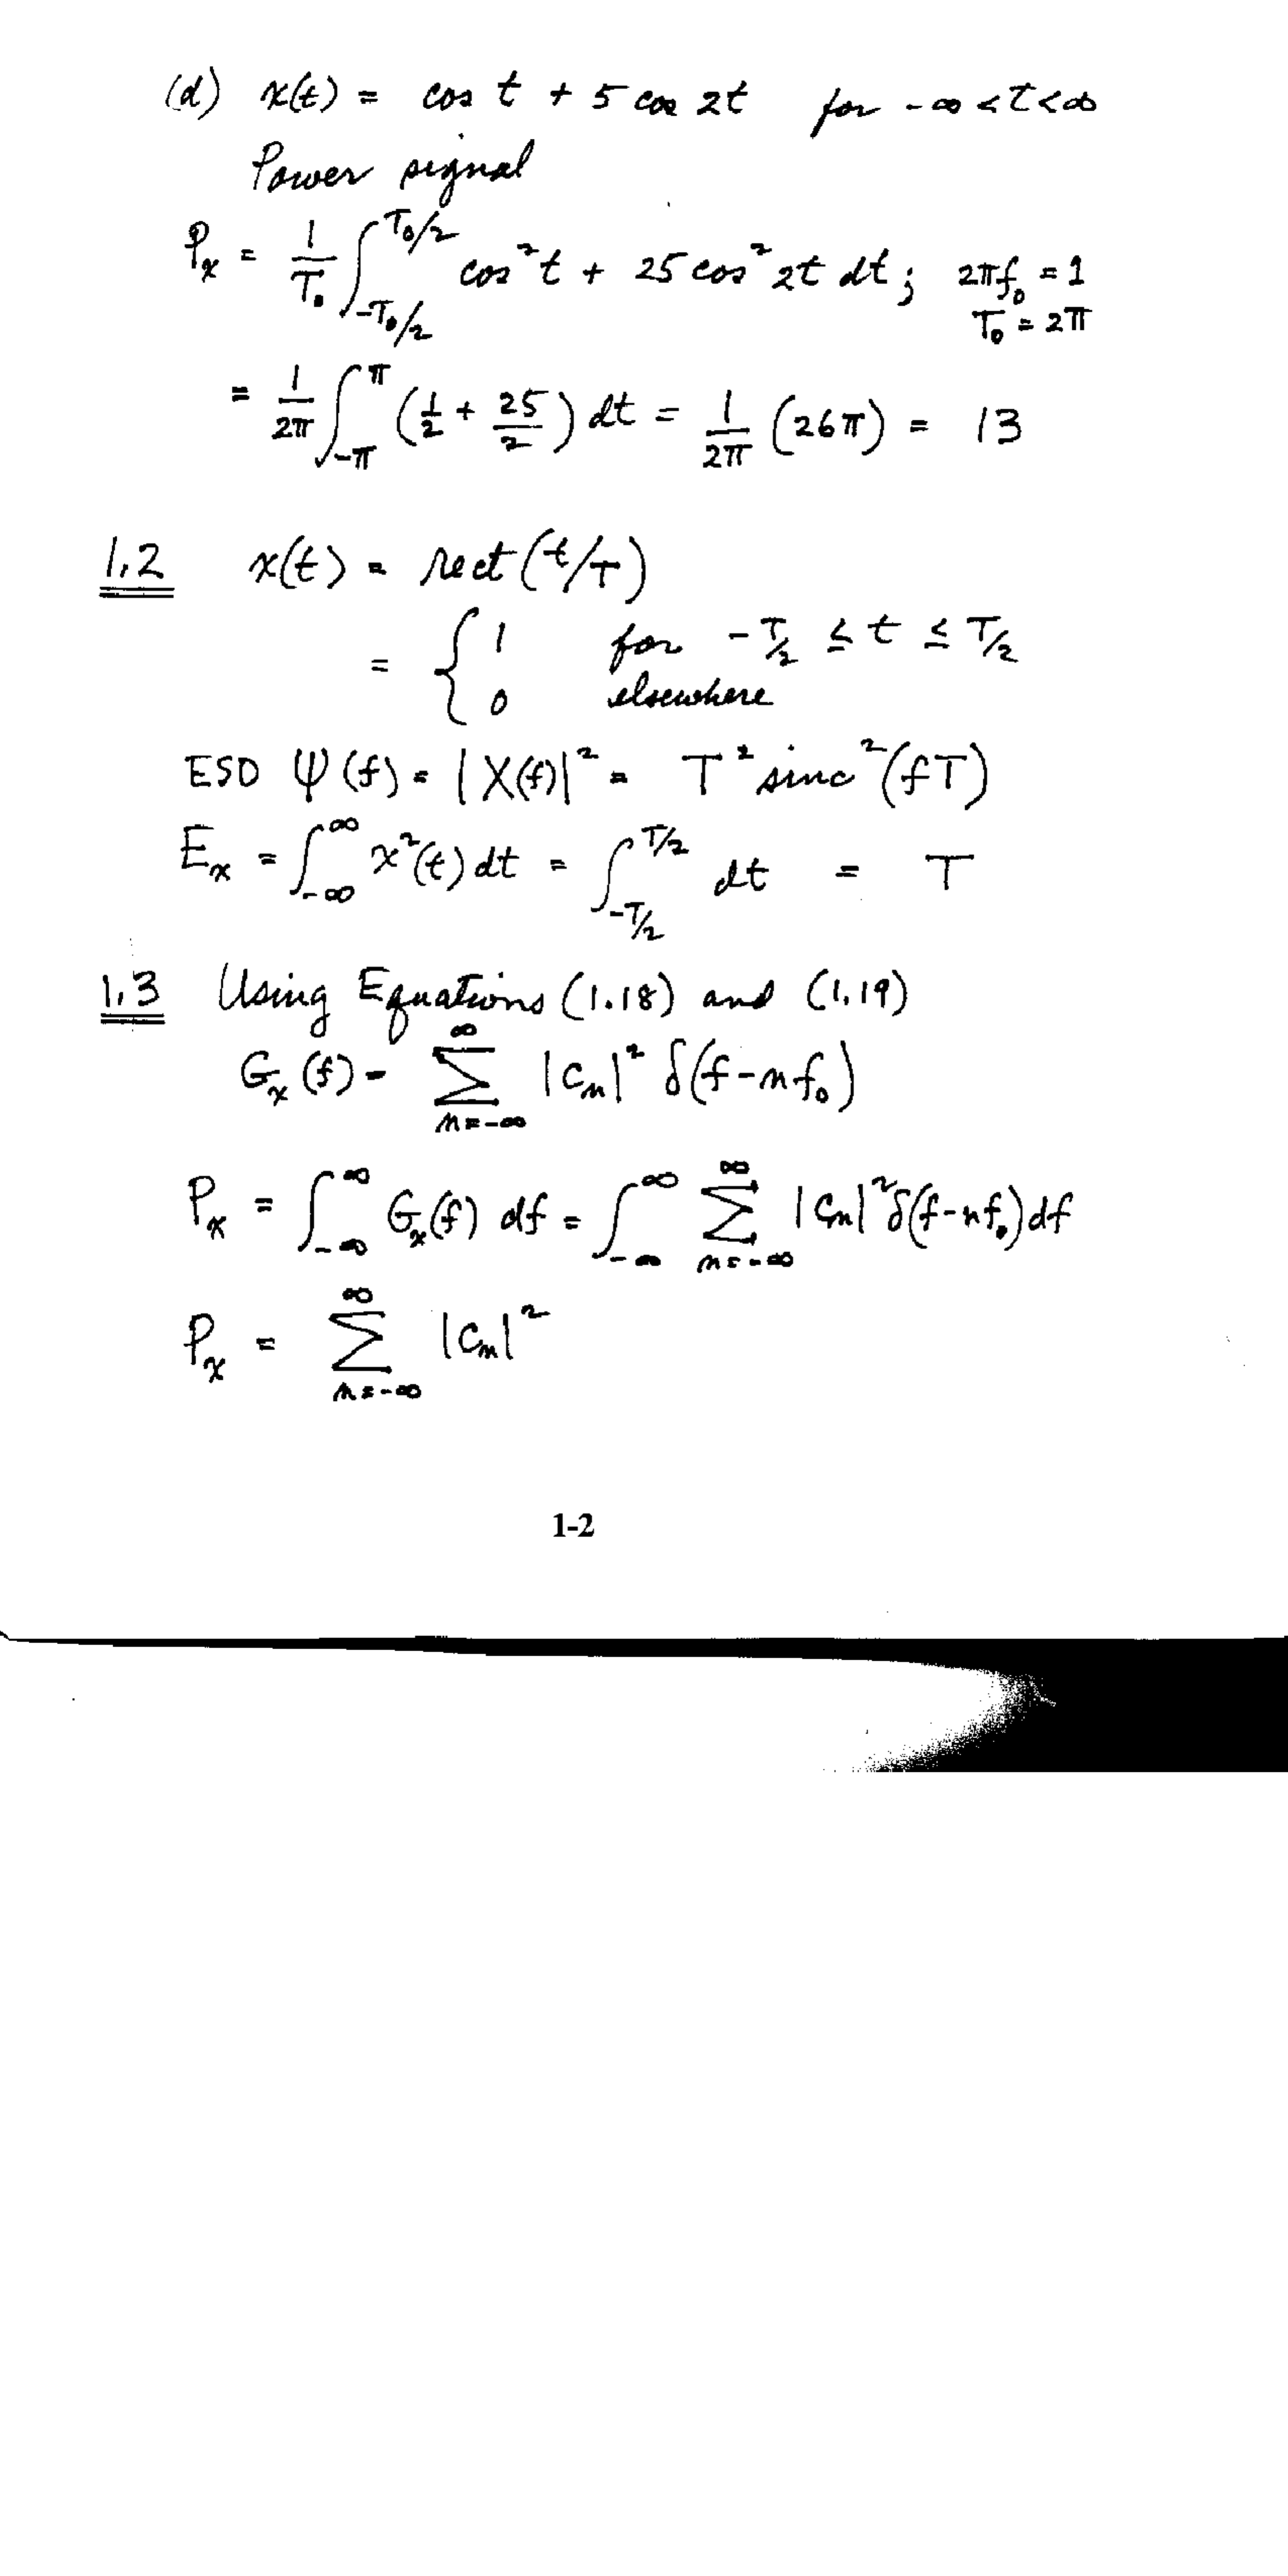 (d) x(t) = cos t + 5 cos 2t for -∞ < t < ∞
Power signal
Pₓ = 1/T₀ ∫_{-T₀/2}^{T₀/2} cos²t + 25 cos²2t dt ; 2πf₀ = 1
T₀ = 2π
= 1/2π ∫_{-π}^{π} (1/2 + 25/2) dt = 1/2π (26π) = 13
1.2 x(t) = rect(t/T)
= { 1 for -T/2 ≤ t ≤ T/2
0 elsewhere
ESD Ψ(f) = |X(f)|² = T² sinc²(fT)
Eₓ = ∫_{-∞}^{∞} x²(t) dt = ∫_{-T/2}^{T/2} dt = T
1.3 Using Equations (1.18) and (1.19)
Gₓ(f) = ∑_{n=-∞}^{∞} |cₙ|² δ(f-nf₀)
Pₓ = ∫_{-∞}^{∞} Gₓ(f) df = ∫_{-∞}^{∞} ∑_{n=-∞}^{∞} |cₙ|² δ(f-nf₀) df
Pₓ = ∑_{n=-∞}^{∞} |cₙ|²
1-2